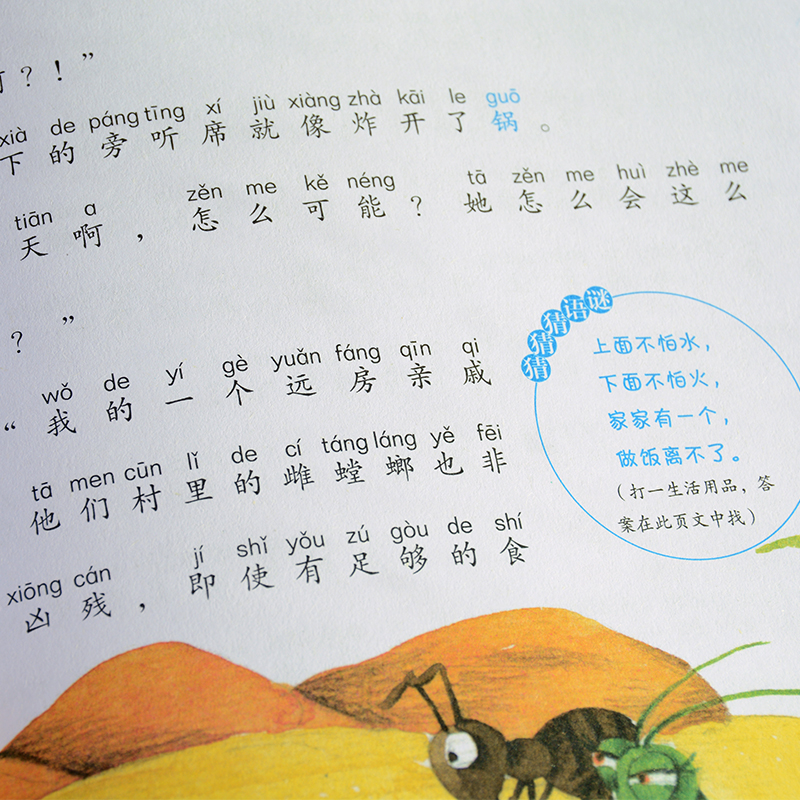 ？！”
xià de páng tīng xí jiù xiàng zhà kāi le guō
下的旁听席就像炸开了锅。
tiān a zěn me kě néng tā zěn me huì zhè me
天啊，怎么可能？她怎么会这么
？”
wǒ de yí gè yuǎn fáng qīn qi
“我的一个远房亲戚
tā men cūn lǐ de cí táng láng yě fēi
他们村里的雌螳螂也非
xiōng cán jí shǐ yǒu zú gòu de shí
凶残，即使有足够的食
猜猜猜语谜
上面不怕水，
下面不怕火，
家家有一个，
做饭离不了。
（打一生活用品，答
案在此页文中找）